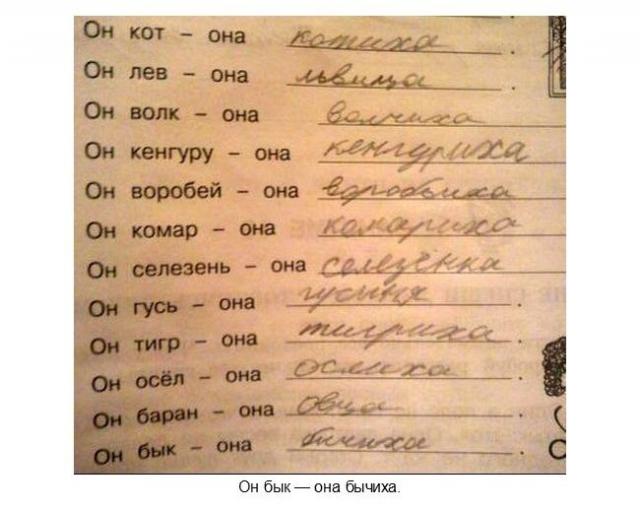 Он кот – она котиха.
Он лев – она львица.
Он волк – она волчиха
Он кенгуру – она кенгуриха
Он воробей – она воробьиха
Он комар – она комариха
Он селезень – она селезёнка
Он гусь – она гусиня.
Он тигр – она тигриха.
Он осёл – она ослиха.
Он баран – она овца.
Он бык – она бичиха.
Он бык — она бычиха.